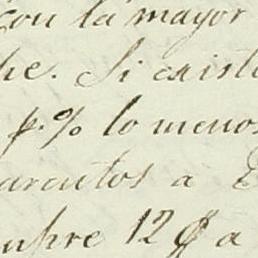 con la mayor
he. Si existe
p.% lo menos
arcutos a
mpre 12 a